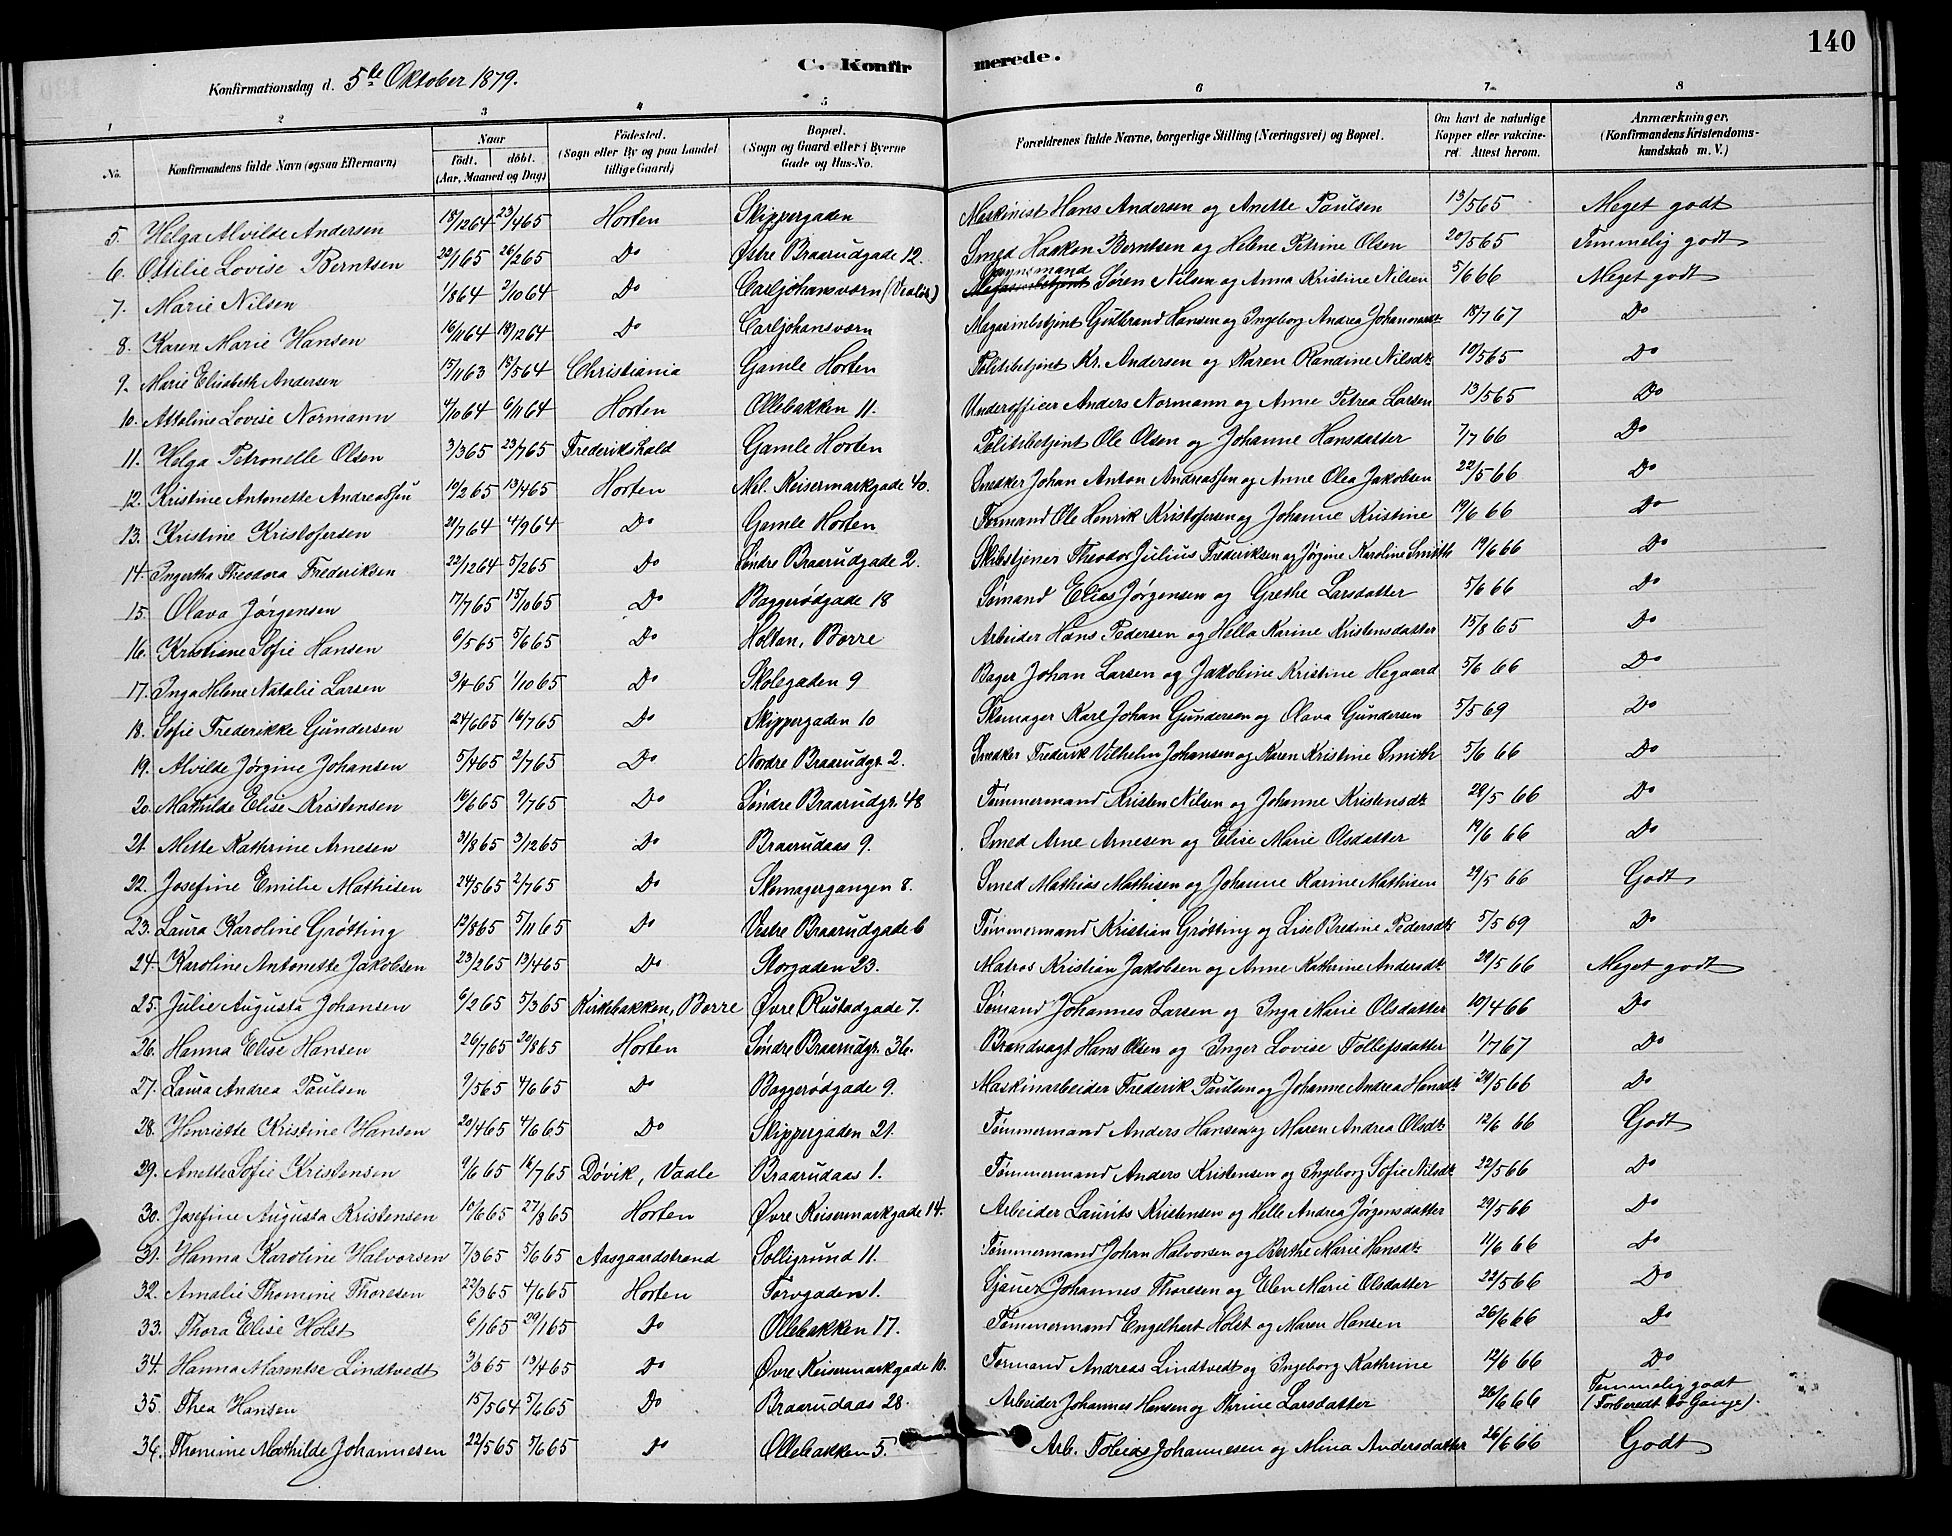 140
C. Konfirmerede.
Konfirmationsdag d. 5te Oktober 1879.
1 2 3 4 5 6 7 8
No. Konfirmandens fulde Navn (ogsaa Efternavn) Naar født. døbt. (Aar, Maaned og Dag) Fødested. (Sogn eller By og paa Landet tillige Gaard) Bopæl. (Sogn og Gaard eller i Byerne Gade og Hus-No. Forældrenes fulde Navne, borgerlige Stilling (Næringsvei) og Bopæl. Om havt de naturlige Kopper eller vakcineret. Attest herom. Anmærkninger. (Konfirmandens Kristendomskundskab m. V.)
5. Helga Alvilde Andersen 18/12 64 23/4 65 Horten Skippergaden Maskinist Hans Andersen og Anette Paulsen 13/5 65 Meget godt
6. Ottilie Lovise Berntsen 22/1 65 26/2 65 Do Østre Braarudgade 12. Smed Haakon Berntsen og Helene Petrine Olsen 20/5 65 Temmelig godt
7. Marie Nilsen 1/8 64 2/10 64 Do Carljohansværn Søren Nilsen og Anna Kristine Nilsen 5/6 66 Meget godt
8. Karen Marie Hansen 16/11 64 18/12 64 Do Carljohansværn Magasinbetjent Gulbrand Hansen og Ingeborg Andrea Johannesdt. 18/7 67 Do
9. Marie Elisabeth Andersen 15/11 63 15/5 64 Christiania Gamle Horten Politibetjent Kr. Andersen og Karen Randine Nilsdt. 10/5 65 Do
10. Attoline Lovise Normann 4/10 64 6/11 64 Horten Ollebakken 11. Underofficer Anders Normann og Anne Petrea Larsen 13/5 65 Do
11. Helga Petronelle Olsen 3/3 65 23/7 65 Frederikshald Gamle Horten Politibetjent Ole Olsen og Johanne Hansdatter 7/7 66 Do
12. Kristine Antonette Andreassen 19/2 65 13/4 65 Horten Mel. Keisermarkgade 40. Snedker Johan Anton Andreassen og Anne Olea Jakobsen 22/5 66 Do
13. Kristine Kristofersen 21/7 64 4/9 64 Do Gamle Horten Formand Ole Henrik Kristofersen og Johanne Kristine 19/6 66 Do
14. Ingertha Theodora Frederiksen 22/12 64 5/2 65 Do Søndre Braarudgade 2. Skibstjener Theodor Julius Frederiksen og Jørgine Karoline Smith 19/6 66 Do
15. Olava Jørgensen 17/7 65 15/10 65 Do Baggerødgade 18 Sømand Elias Jørgensen og Grethe Larsdatter 5/6 66 Do
16. Kristiane Sofie Hansen 6/5 65 5/6 65 Do Holtan, Borre Arbeider Hans Pedersen og Hella Karine Kristensdatter 15/8 65 Do
17. Inga Helene Natalie Larsen 3/4 65 1/10 65 Do Skolegaden 9 Bager Johan Larsen og Jakobine Kristine Hegaard 5/6 66 Do
18. Sofie Frederikke Gundersen 24/6 65 16/7 65 Do Skippergaden 10 Skomager Karl Johan Gundersen og Olava Gundersen 5/5 69 Do
19. Alvilde Jørgine Johansen 5/4 65 2/7 65 Do Nordre Braarudgt. 2. Snedker Frederik Vilhelm Johansen og Karen Kristine Smith 5/6 66 Do
20. Mathilde Elise Kristensen 16/6 65 9/7 65 Do Søndre Braarudgt. 48 Tømmermand Kristen Nilsen og Johanne Kristensdt. 28/5 66 Do
21. Mette Kathrine Arnesen 31/8 65 3/12 65 Do Braarudaas 9. Smed Arne Arnesen og Elise Marie Olsdatter 19/6 66 Do
22. Josefine Emilie Mathisen 24/5 65 2/7 65 Do Skomagergangen 8. Smed Mathias Mathisen og Johanne Karine Mathisen 29/5 66 Godt
23. Laura Karoline Grøtting 12/8 65 5/11 65 Do Vestre Braarudgade 6 Tømmermand Kristian Grøtting og Lise Bredine Pedersdt. 5/5 69 Do
24. Karoline Antonette Jakobsen 23/2 65 13/4 65 Do Storgaden 23. Matros Kristian Jakobsen og Anne Kathrine Andersdt. 29/5 66 Meget godt
25. Julie Augusta Johansen 6/2 65 5/3 65 Kirkebakken, Borre Øvre Rustadgade 7. Sømand Johannes Larsen og Inga Marie Olsdatter 10/4 66 Do
26. Hanna Elise Hansen 26/7 65 20/8 65 Horten Søndre Braarudgt. 36. Brandvagt Hans Olsen og Inger Lovise Tollefsdatter 1/7 67 Do
27. Laura Andrea Paulsen 9/5 65 4/6 65 Do Baggerødgade 9. Maskinarbeider Frederik Paulsen og Johanne Andrea Hansdt. 29/5 66 Do
28. Henriette Kristine Hansen 20/4 65 4/6 65 Do Skippergaden 21. Tømmermand Anders Hansen og Maren Andrea Olsdt. 12/6 66 Godt
29. Anette Sofie Kristensen 9/6 65 16/7 65 Døvik, Vaale Braarudaas 1. Tømmermand Anders Kristensen og Ingeborg Sofie Nilsdt. 22/5 66 Do
30. Josefine Augusta Kristensen 10/6 65 27/8 65 Horten Øvre Keisermarkgade 14. Arbeider Laurits Kristensen og Helle Andrea Jørgensdatter 29/5 66 Do
31. Hanna Karoline Halvorsen 7/3 65 5/6 65 Aasgaardstrand Solligrund 11. Tømmermand Johan Halvorsen og Berthe Marie Hansdt. 11/6 66 Do
32. Amalie Thomine Thoresen 22/3 65 4/6 65 Horten Torvgaden 1. Johannes Thoresen og Elen Marie Olsdatter 22/5 66 Do
33. Thora Elise Holst 6/1 65 29/1 65 Do Ollebakken 17. Tømmermand Engelhart Holst og Maren Hansen 26/6 66 Do
34. Hanna Marentse Lindtvedt 3/3 65 13/4 65 Do Øvre Keisermarkgade 10. Formand Andreas Lindtvedt og Ingeborg Kathrine 12/6 66 Do
35. Thea Hansen 15/5 64 5/6 65 Do Braarudaas 28. Arbeider Johannes Hansen og Thrine Larsdatter 26/6 66 Temmelig godt (Forberedt to Gange).
36. Thomine Mathilde Johannesen 22/5 65 5/6 65 Do Ollebakken 5. Arb. Tobias Johannesen og Mina Andersdatter 26/6 66 Godt